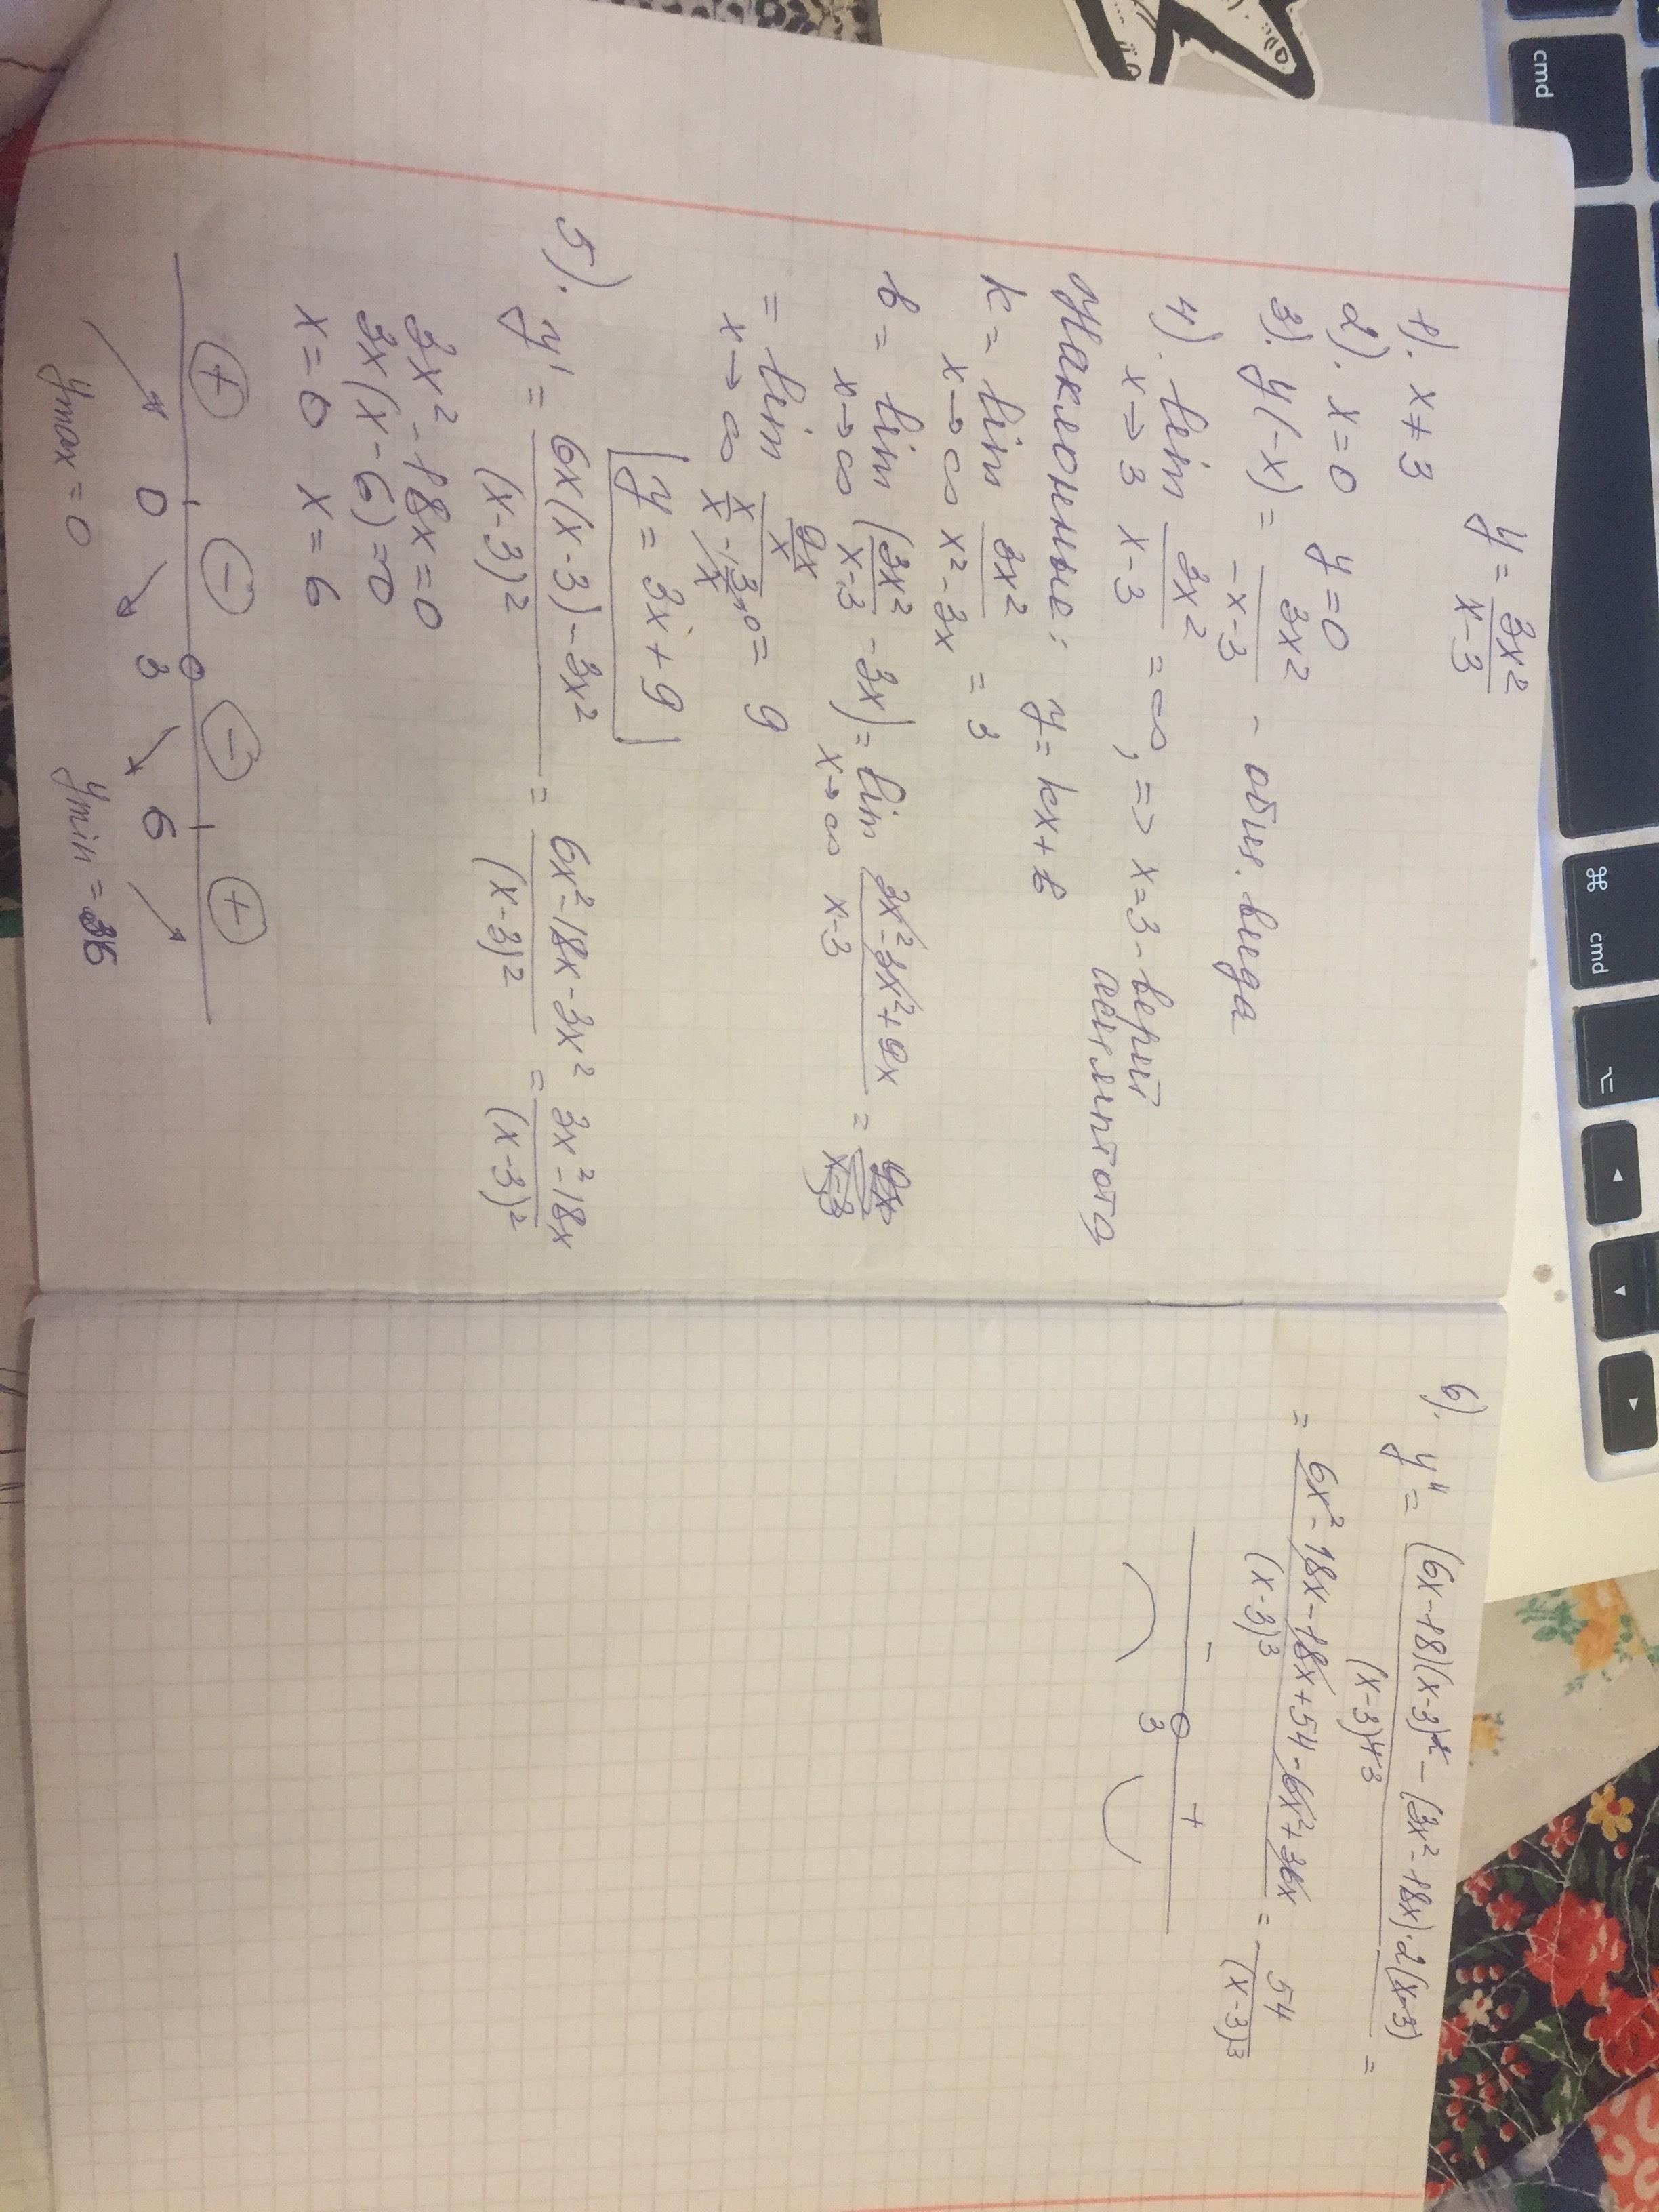 y = 3x²/(x-3)
1). x ≠ 3
2). x=0 y=0
3). y(-x) = 3x²/(-x-3) - общ. вида
4). lim x→3 3x²/(x-3) = ∞, => x=3 - верт
асимптота
Наклонные: y = kx+b
k = lim x→∞ 3x²/(x²-3x) = 3
b = lim x→∞ (3x²/(x-3) - 3x) = lim x→∞ (3x²-3x²+9x)/(x-3) =
= lim x→∞ (9x/x)/(x/x - 3/x→0) = 9
y = 3x + 9
5). y' = (6x(x-3)-3x²)/(x-3)² = (6x²-18x-3x²)/(x-3)² = (3x²-18x)/(x-3)²
3x²-18x=0
3x(x-6)=0
x=0 x=6
+ - - +
0 3 6
ymax=0 ymin=36
6). y'' = ((6x-18)(x-3)² - (3x²-18x)·2(x-3))/(x-3)⁴ ³ =
= (6x²-18x-18x+54-6x²+36x)/(x-3)³ = 54/(x-3)³
- +
3
cmd
⌘ cmd
⌥
◀
▲
▶